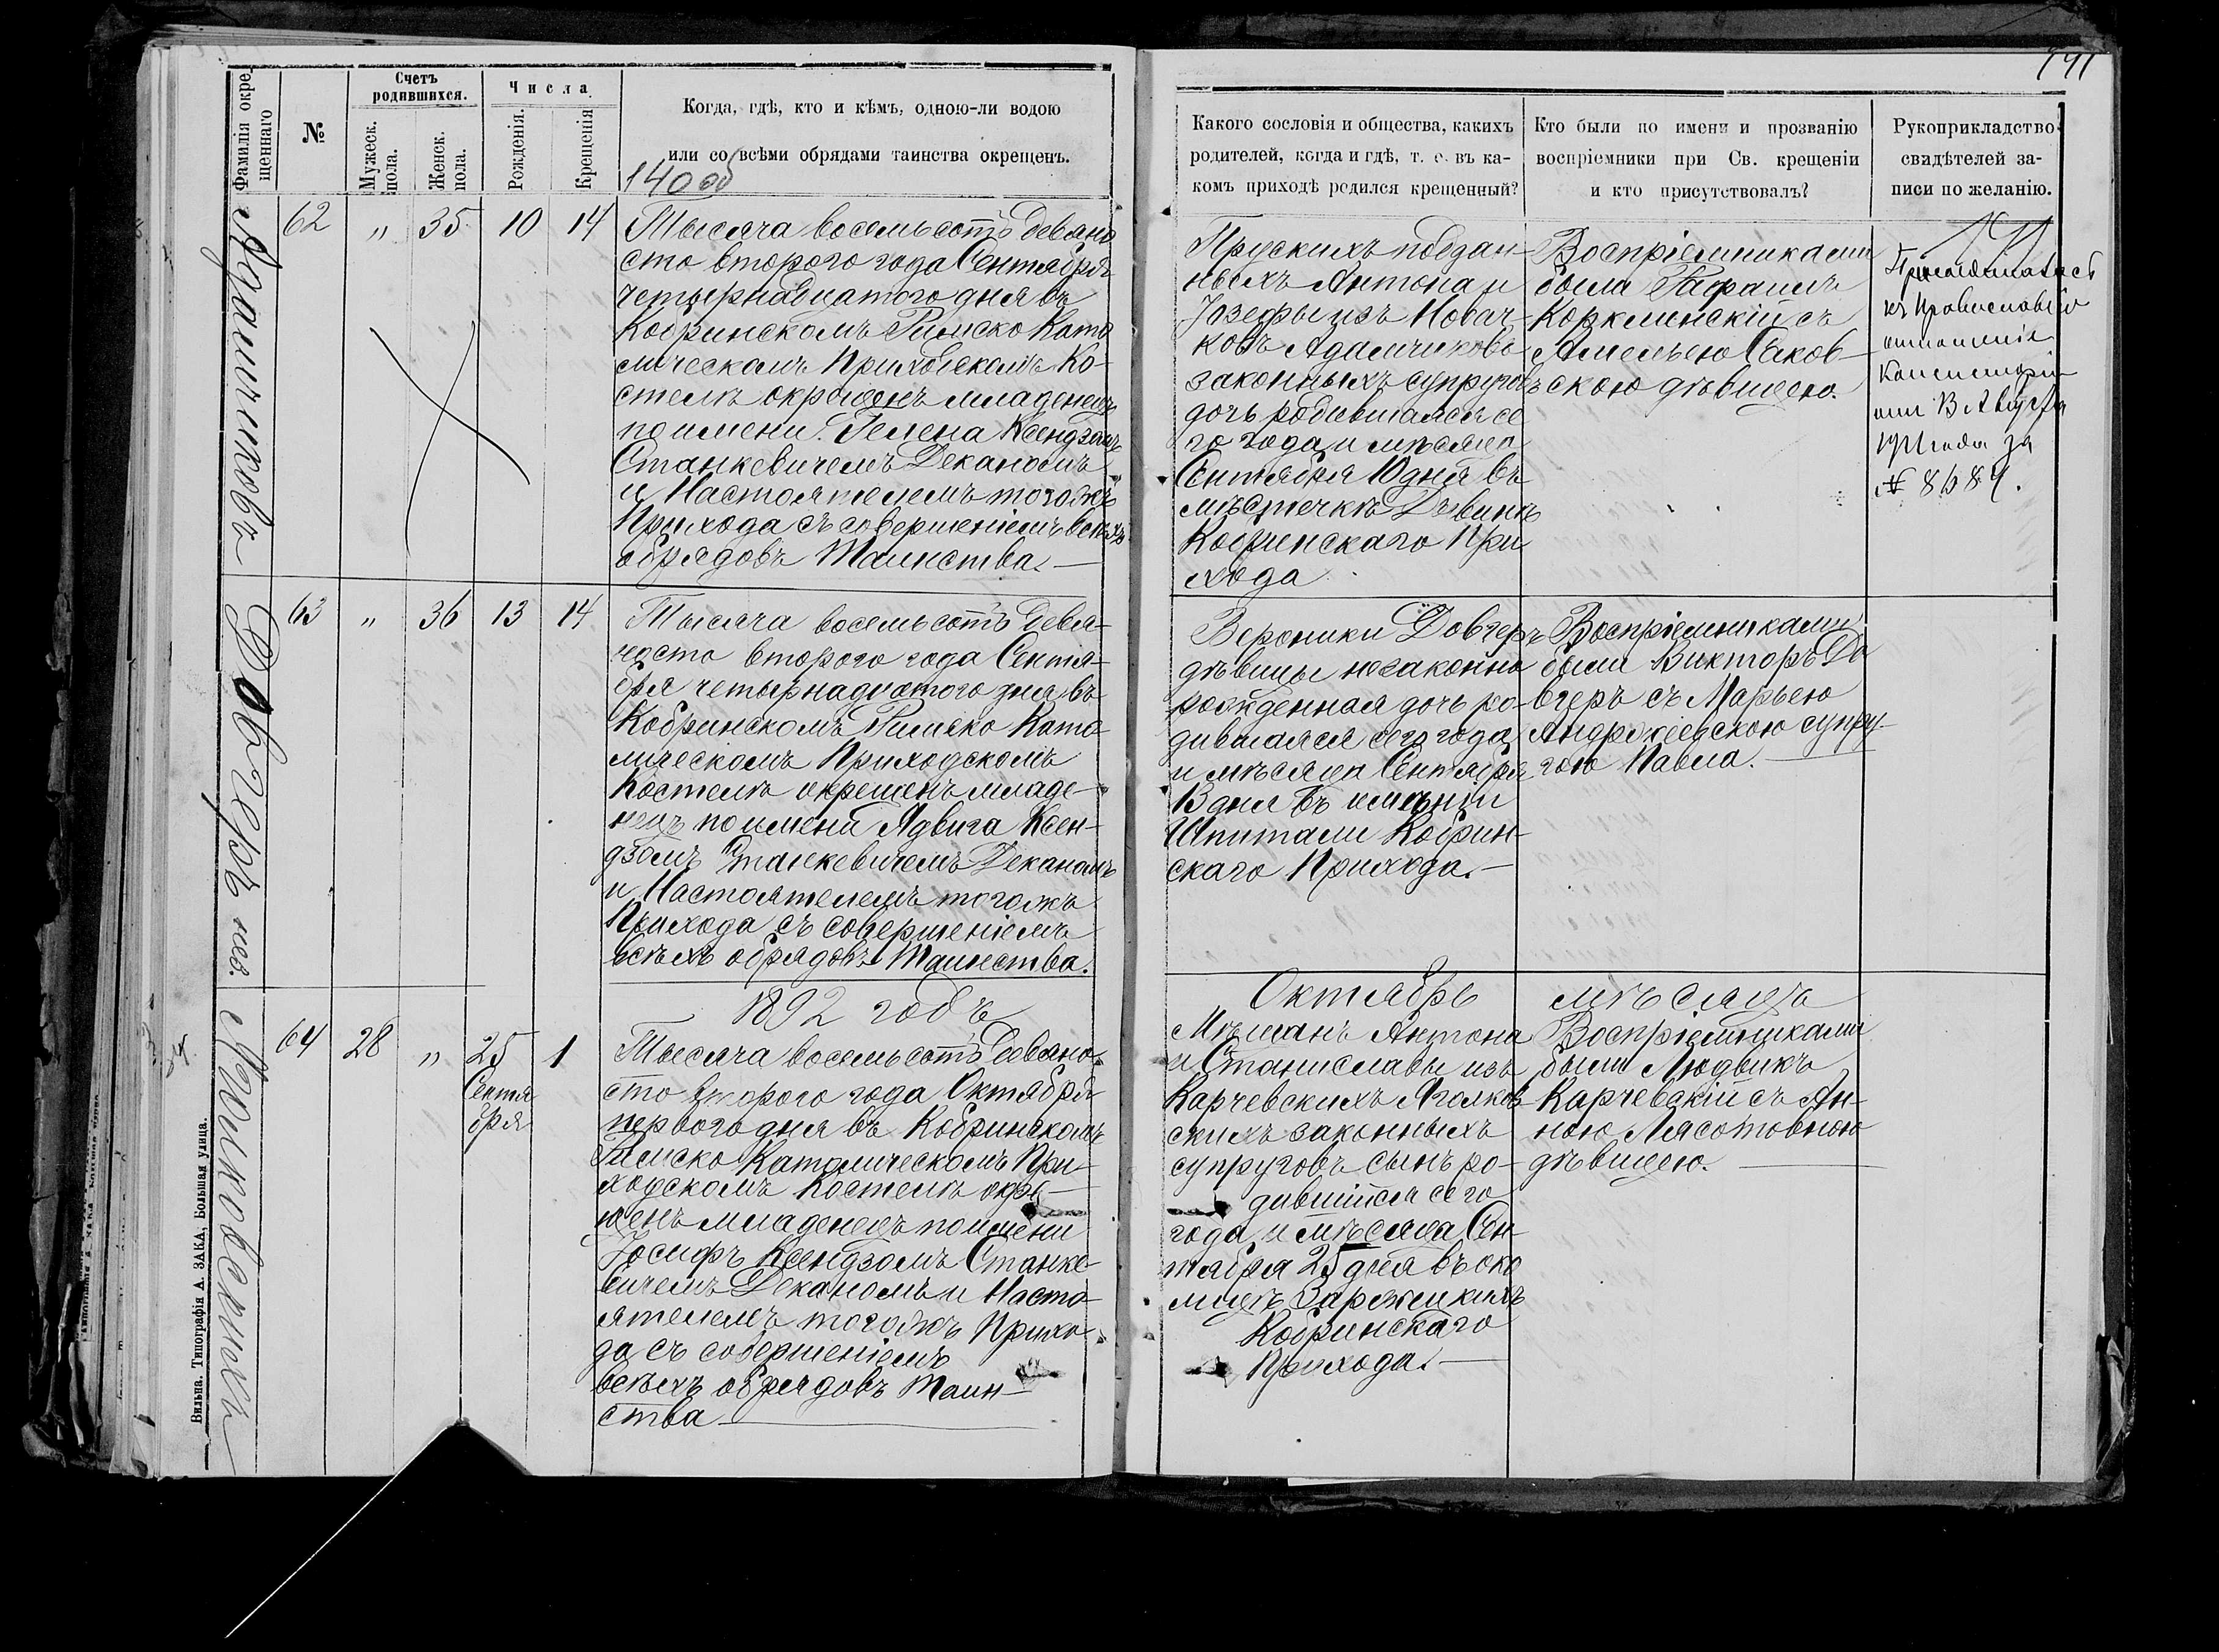 Фамилія окре-
щеннаго
№
Счетъ
родившихся.
Мужеск.
пола.
Женск.
пола.
Числа
Рожденія.
Крещенія
Когда, гдѣ, кто и кѣмъ, одною-ли водою
или со всѣми обрядами таинства окрещенъ.
140 об
Адамчиковъ
62 " 35 10 14
Тысяча восемьсотъ девяно
сто второго года Сентября
четырнадцатого дня въ
Кобринскомъ Римско Като
лическомъ Приходскомъ Ко-
стелѣ окрещенъ младенецъ
по имени Гелена Ксендзомъ
Станкевичемъ Деканомъ
и Настоятелемъ тогожъ
Прихода съ совершеніемъ всѣхъ
обрядовъ Таинства.—
Довгеръ нез.
63 " 36 13 14
Тысяча восемьсотъ девя-
носто второго года Сентя-
бря четырнадцатого дня въ
Кобринскомъ Римско Като-
лическомъ Приходскомъ
Костелѣ окрещенъ младе-
нецъ по имени Ядвига Ксен-
дзомъ Станкевичемъ Деканомъ
и Настоятелемъ тогожъ
Прихода съ совершеніемъ
всѣхъ обрядовъ Таинства.
1892 годъ
64 28 " 25 1
Сентя
бря
Тысяча восемьсотъ девяно-
сто второго года Октября
перваго дня въ Кобринскомъ
Римско Католическомъ При-
ходскомъ Костелѣ окре-
щенъ младенецъ по имени
Іосифъ Ксендзомъ Станке-
вичемъ Деканомъ и Насто-
ятелемъ тогожъ Прихо-
да съ совершеніемъ
всѣхъ обрядовъ Таин-
ства
Вильна. Типографія А. ЗАКА, Большая улица.
141
Какого сословія и общества, какихъ
родителей, когда и гдѣ, т. е. въ ка-
комъ приходѣ родился крещенный?
Кто были по имени и прозванію
воспріемники при Св. крещеніи
и кто присутствовалъ?
Рукоприкладство
свидѣтелей за-
писи по желанію.
Прускихъ поддан-
ныхъ Антона и
Іозефы изъ Новач-
ковъ Адамчиковъ
законныхъ супруговъ
дочь родившаяся се
го года и мѣсяца
Сентября 10 дня въ
мѣстечкѣ Дывинѣ
Кобринскаго При
хода
Воспріемниками
были Рафаилъ
съ
Амелъею Саков-
скою дѣвицею.
141
къ Православію
отношеніе
Консисторіи
№ 8684.
Вероники Довгеръ
дѣвицы незаконно
рожденная дочь ро-
дившаяся сего года
и мѣсяца Сентября
13 дня въ имѣніи
Шпитали Кобрин-
скаго Прихода.—
Воспріемниками
были Викторъ До
вгеръ съ Марьею
Андржіевскою супру-
гою Павла.
Октябрь мѣсяцъ
Мѣщанъ Антона
и Станиславы изъ
Карчевскихъ Яголков-
скихъ законныхъ
супруговъ сынъ ро-
дившійся сего
года и мѣсяца Сен-
тября 25 дня въ око
лицѣ
Кобринскаго
Прихода.—
Воспріемниками
были Людвикъ
Карчевскій съ Ан-
ною
дѣвицею.